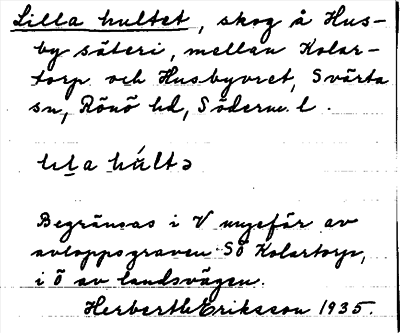 Lilla hultet, skog å Hus-
by säteri, mellan Kolar-
torp och Husbyvret, Svärta
sn, Rönö hd, Söderm. l.
lɩla hult ə
Begränsas i V ungefär av
avloppsgraven SÖ Kolartorp,
i Ö av landsvägen.
Herberth Eriksson 1935.